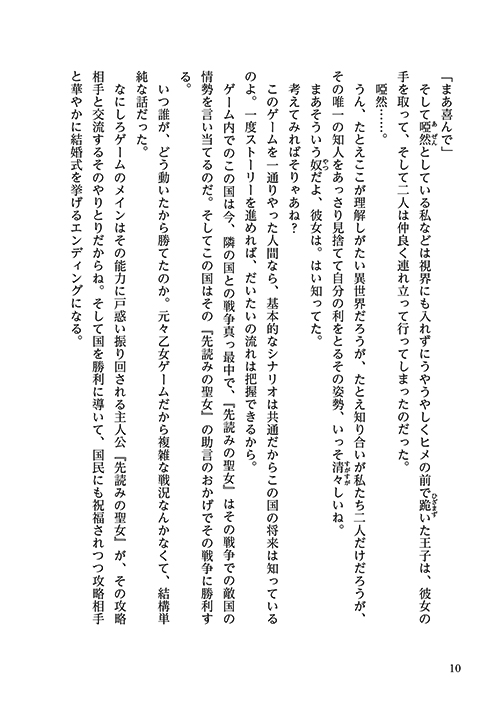 「まあ喜んで」
そして啞然としている私などは視界にも入れずにうやうやしくヒメの前で跪いた王子は、彼女の
手を取って、そして二人は仲良く連れ立って行ってしまったのだった。
啞然……。
うん、たとえここが理解しがたい異世界だろうが、たとえ知り合いが私たち二人だけだろうが、
その唯一の知人をあっさり見捨てて自分の利をとるその姿勢、いっそ清々しいね。
まあそういう奴だよ、彼女は。はい知ってた。
考えてみればそりゃあね？
このゲームを一通りやった人間なら、基本的なシナリオは共通だからこの国の将来は知っている
のよ。一度ストーリーを進めれば、だいたいの流れは把握できるから。
ゲーム内でのこの国は今、隣の国との戦争真っ最中で、『先読みの聖女』はその戦争での敵国の
情勢を言い当てるのだ。そしてこの国はその『先読みの聖女』の助言のおかげでその戦争に勝利す
る。
いつ誰が、どう動いたから勝てたのか。元々乙女ゲームだから複雑な戦況なんかなくて、結構単
純な話だった。
なにしろゲームのメインはその能力に戸惑い振り回される主人公『先読みの聖女』が、その攻略
相手と交流するそのやりとりだからね。そして国を勝利に導いて、国民にも祝福されつつ攻略相手
と華やかに結婚式を挙げるエンディングになる。
10